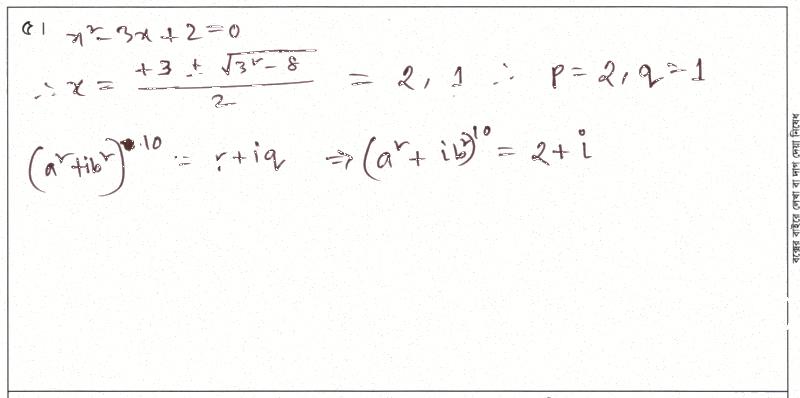 ৫। x² - 3x + 2 = 0
∴ x = (+3 ± √(3² - 8)) / 2 = 2, 1 ∴ p = 2, q = 1
(a² + ib²)^10 = r + iq ⇒ (a² + ib²)^10 = 2 + i
বক্সের বাইরে লেখা বা দাগ দেয়া নিষেধ